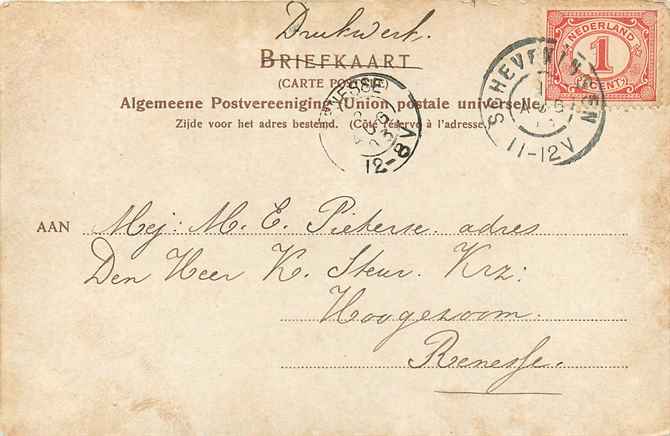 Drukwerk.
BRIEFKAART
(CARTE POSTALE)
Algemeene Postvereeniging (Union postale universelle)
Zijde voor het adres bestemd. (Côté réservé à l'adresse.)
NEDERLAND
1
CENT
SCHEVENINGEN
AUG
11-12V
RENESSE
12-8V
AAN Mej: M. E. Pieterse. adres
Den Heer K. Steur. Krz:
Hoogezoom.
Renesse.